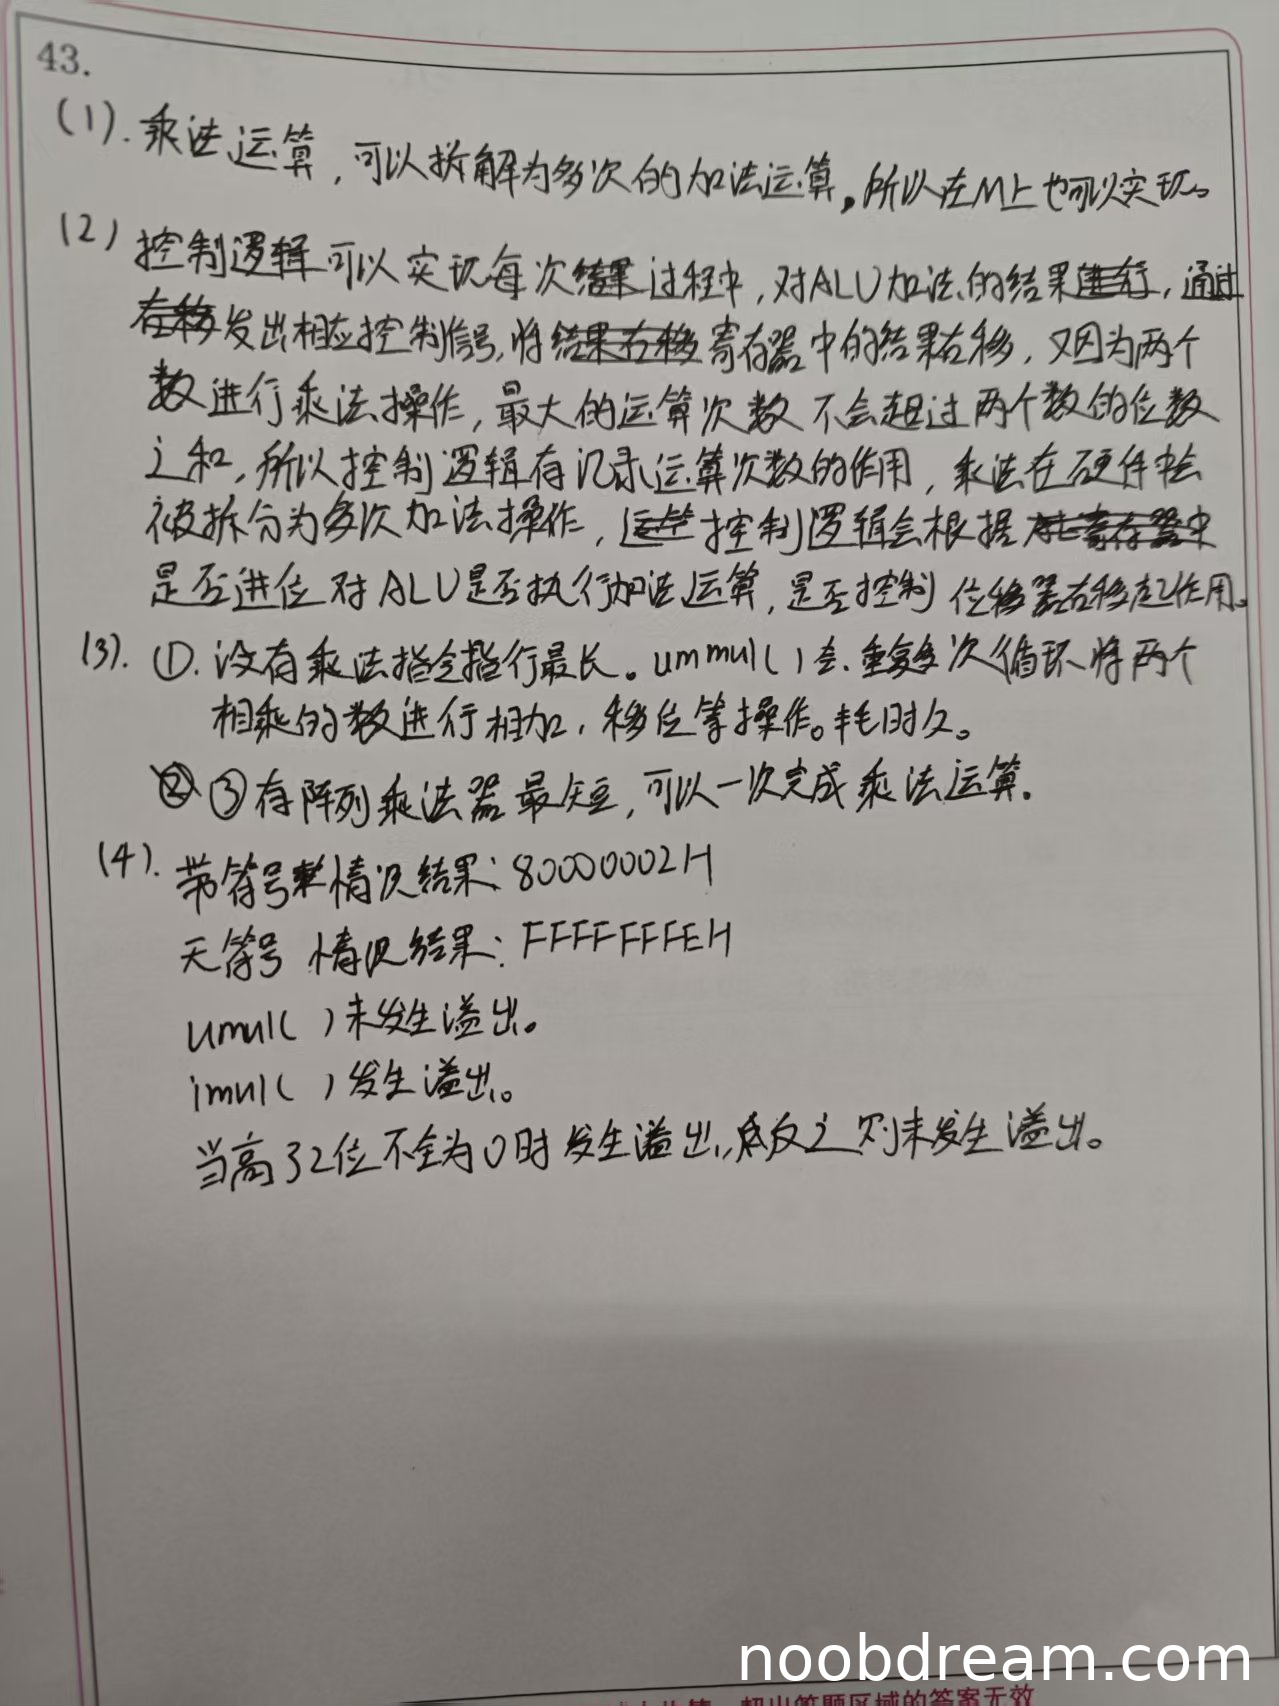 43.
(1). 乘法运算，可以拆解为多次的加法运算，所以在M上也可以实现。
(2) 控制逻辑可以实现每次结果过程中，对ALU加法的结果进行，通过
右移发出相应控制信号，将结果右移寄存器中的结果右移，又因为两个
数进行乘法操作，最大的运算次数不会超过两个数的位数
之和，所以控制逻辑有记录运算次数的作用，乘法在硬件中会
被拆分为多次加法操作，运算控制逻辑会根据寄存器中
是否进位对ALU是否执行加法运算，是否控制位移器右移起作用。
(3). ①. 没有乘法指令指行最长。ummul()会重复多次循环将两个
相乘的数进行相加，移位等操作。耗时久。
② ③存阵列乘法器最短，可以一次完成乘法运算.
(4). 带符号情况结果：80000002H
无符号情况结果：FFFFFFFEH
umul( )未发生溢出。
imul( )发生溢出。
当高32位不全为0时发生溢出，反之则未发生溢出。
noobdream.com
超出答题区域的答案无效